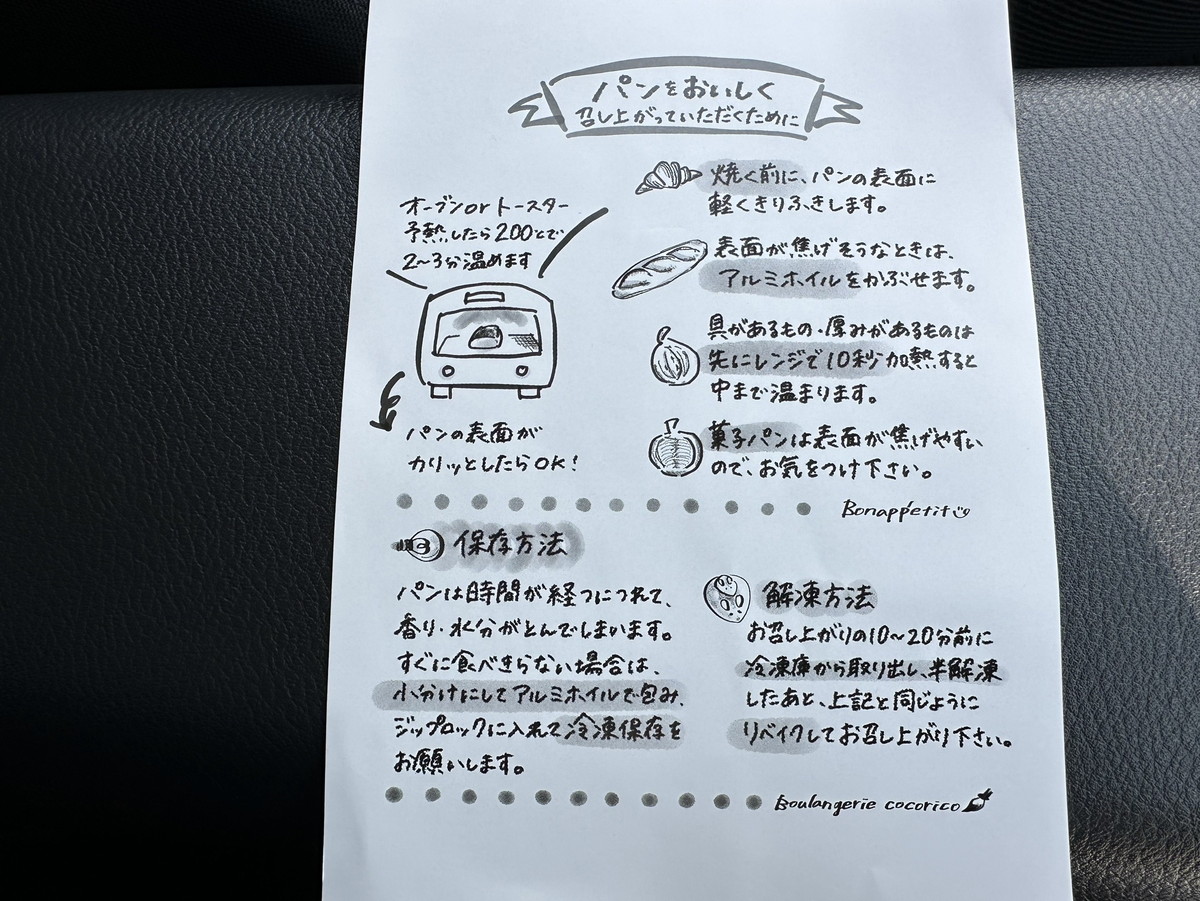 パンをおいしく
召し上がっていただくために
オーブンorトースター
予熱したら200℃で
2〜3分温めます
パンの表面が
カリッとしたらOK!
焼く前に、パンの表面に
軽くきりふきします。
表面が焦げそうなときは、
アルミホイルをかぶせます。
具があるもの・厚みがあるものは
先にレンジで10秒加熱すると
中まで温まります。
菓子パンは表面が焦げやすい
ので、お気をつけ下さい。
Bonappétit
保存方法
パンは時間が経つにつれて、
香り・水分がとんでしまいます。
すぐに食べきらない場合は、
小分けにしてアルミホイルで包み、
ジップロックに入れて冷凍保存を
お願いします。
解凍方法
お召し上がりの10〜20分前に
冷凍庫から取り出し、半解凍
したあと、上記と同じように
リベイクしてお召し上がり下さい。
Boulangerie cocorico